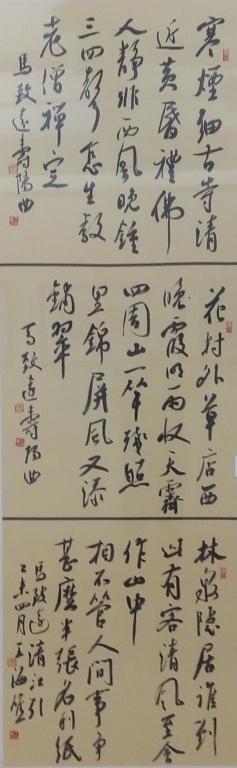 寒煙細古寺清
近黃昏禮佛
人靜順西風晚鐘
三四聲怎生教
老僧禪定
馬致遠壽陽曲
花村外草店西
晚霞明雨收天霽
四圍山一竿殘照
里錦屏風又添
鋪翠
馬致遠壽陽曲
林泉隱居誰到
此有客清風至會
作山中
相不管人間事爭
甚麼半張名利紙
馬致遠清江引
乙未四月王海